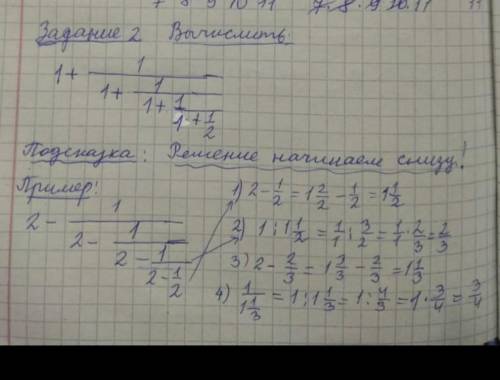 7 8 9 10 11 7. 8. 9. 10. 11 11
Задание 2 Вычислить:
1 + 1/(1 + 1/(1 + 1/(1 + 1/2)))
Подсказка: Решение начинаем снизу!
Пример:
2 - 1/(2 - 1/(2 - 1/(2 - 1/2)))
1) 2 - 1/2 = 1 2/2 - 1/2 = 1 1/2
2) 1 : 1 1/2 = 1/1 : 3/2 = 1/1 · 2/3 = 2/3
3) 2 - 2/3 = 1 3/3 - 2/3 = 1 1/3
4) 1/(1 1/3) = 1 : 1 1/3 = 1 : 4/3 = 1 · 3/4 = 3/4